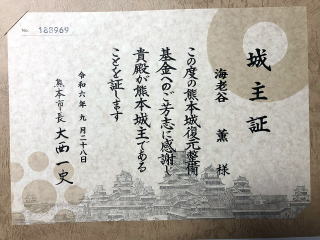 No. 188969
城主証
海老谷 薫 様
この度の熊本城復元整備
基金へのご芳志に感謝し
貴殿が熊本城主である
ことを証します
令和六年 九月二十八日
熊本市長 大西一史